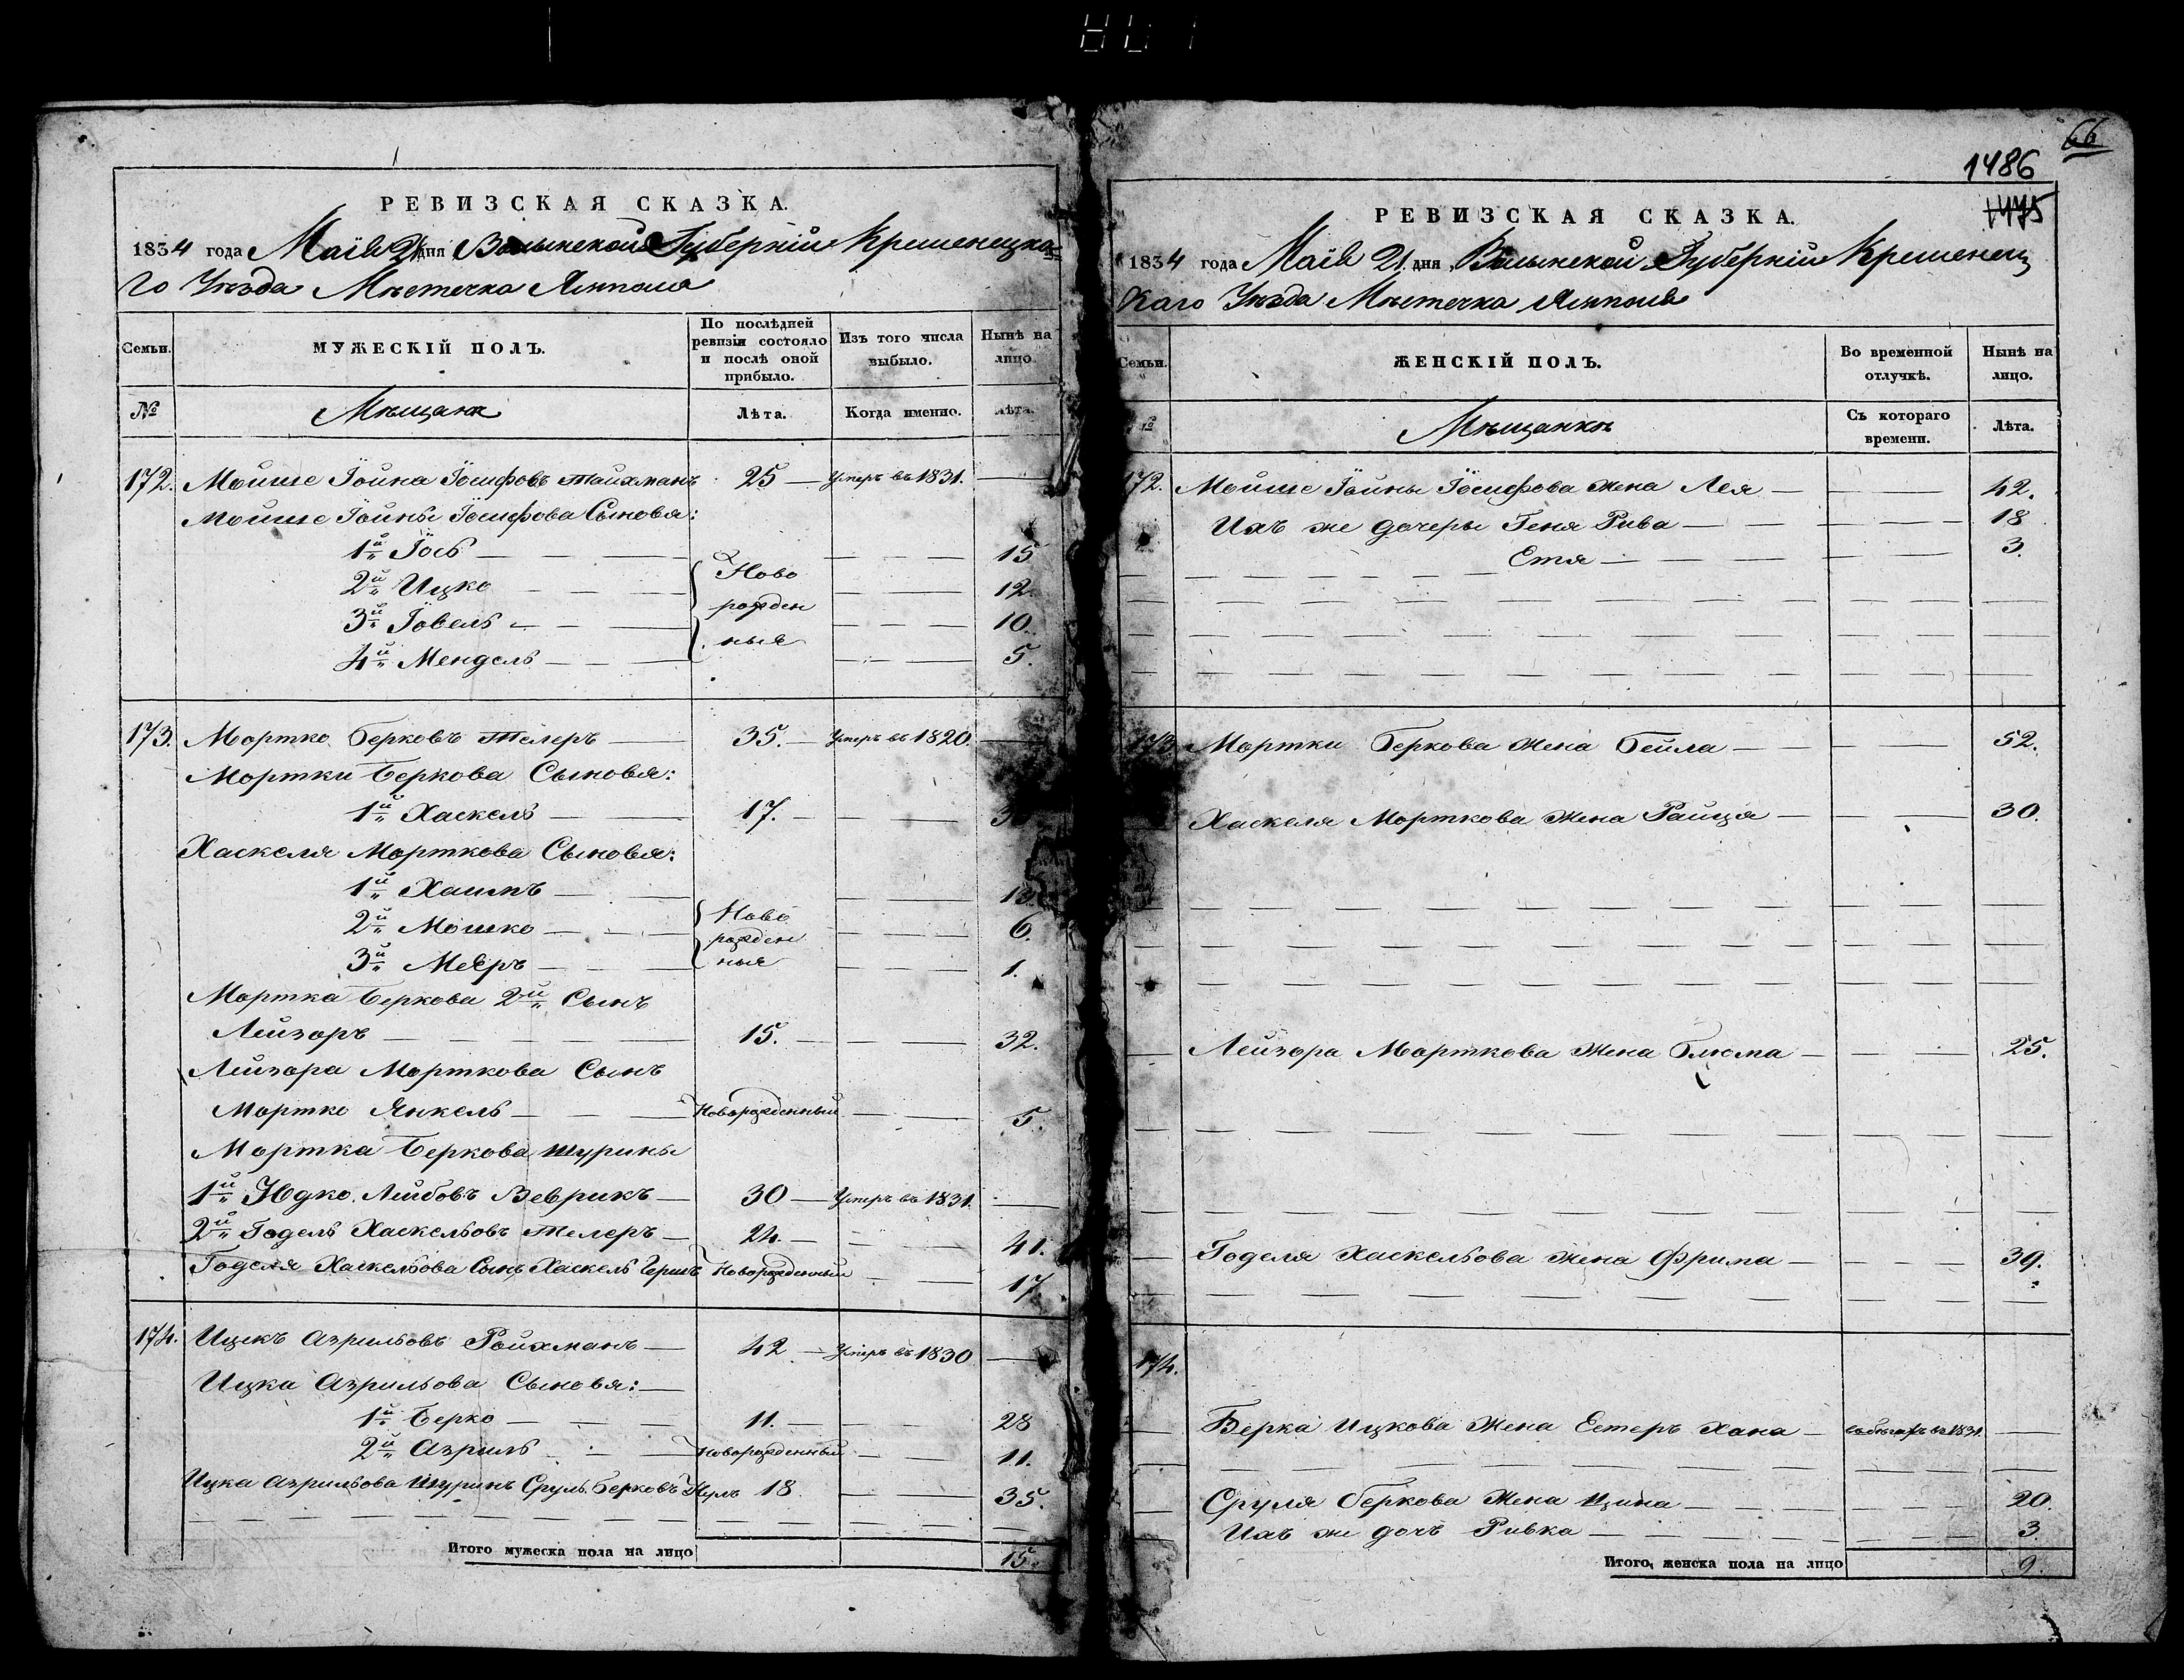 66
1486
1475
РЕВИЗСКАЯ СКАЗКА.
1834 года Маія 21 дня, Волынской Губерніи Кременецка-
го Уѣзда Мѣстечка Ямполя
Семьи.
МУЖЕСКІЙ ПОЛЪ.
По послѣдней ревизіи состояло и послѣ оной прибыло.
Изъ того числа выбыло.
Нынѣ на лицо.
№
Мѣщане
Лѣта.
Когда именно.
Лѣта.
172. Мойше Іойна Іосифовъ Тайхманъ 25 — Умеръ въ 1831. —
Мойше Іойны Іосифова Сыновья:
1й Іось — — — 15
2й Ицко — — Ново 12.
3й Іовель — — рожден 10.
4й Мендель — — ные 5.
173. Мортко Берковъ Телеръ — 35. — Умеръ въ 1820. —
Мортки Беркова Сыновья:
1й Хаскель — 17. —
Хаскеля Морткова Сыновья:
1й Хаимъ — 13.
2й Мошко — Ново рожден 6.
3й Мееръ — ные 1.
Мортка Беркова 2й Сынъ
Лейзоръ — 15. — 32.
Лейзора Морткова Сынъ
Мортко Янкель — Новорожденный — 5.
Мортка Беркова шурины
1й Юдко Лейбовъ Зеврикъ — 30 — Умеръ въ 1831. —
2й Годель Хаскельовъ Телеръ — 24. — 41.
Годеля Хаскельова Сынъ Хаскель Гершъ Новорожденный — 17.
174. Ицекъ Азрильовъ Ройхманъ — 42 — Умеръ въ 1830 —
Ицка Азрильова Сыновья: —
1й Берко — 11. — 28
2й Азриль — Новорожденный — 11.
Ицка Азрильова Шуринъ Сруль Берковъ 18. — 35.
Итого мужеска пола на лицо 15.
РЕВИЗСКАЯ СКАЗКА.
1834 года Маія 21. дня, Волынской Губерніи Кременец
каго Уѣзда Мѣстечка Ямполя
Семьи.
ЖЕНСКІЙ ПОЛЪ.
Во временной отлучкѣ.
Нынѣ на лицо.
№
Мѣщанки
Съ котораго времени.
Лѣта.
172. Мойше Іойны Іосифова жена Лея — — 42.
Ихъ же дочеры Геня Рива — — 18
Етя — — 3.
173 Мортки Беркова жена Бейла — — 52.
Хаскеля Морткова жена Райця — — 30.
Лейзора Морткова жена Блюма — — 25.
Годеля Хаскельова жена Фрима — — 39.
174.
Берка Ицкова жена Естеръ Хана — въ 1831. —
Сруля Беркова жена Ципа — — 20.
Ихъ же дочъ Ривка — — 3.
Итого, женска пола на лицо 9.